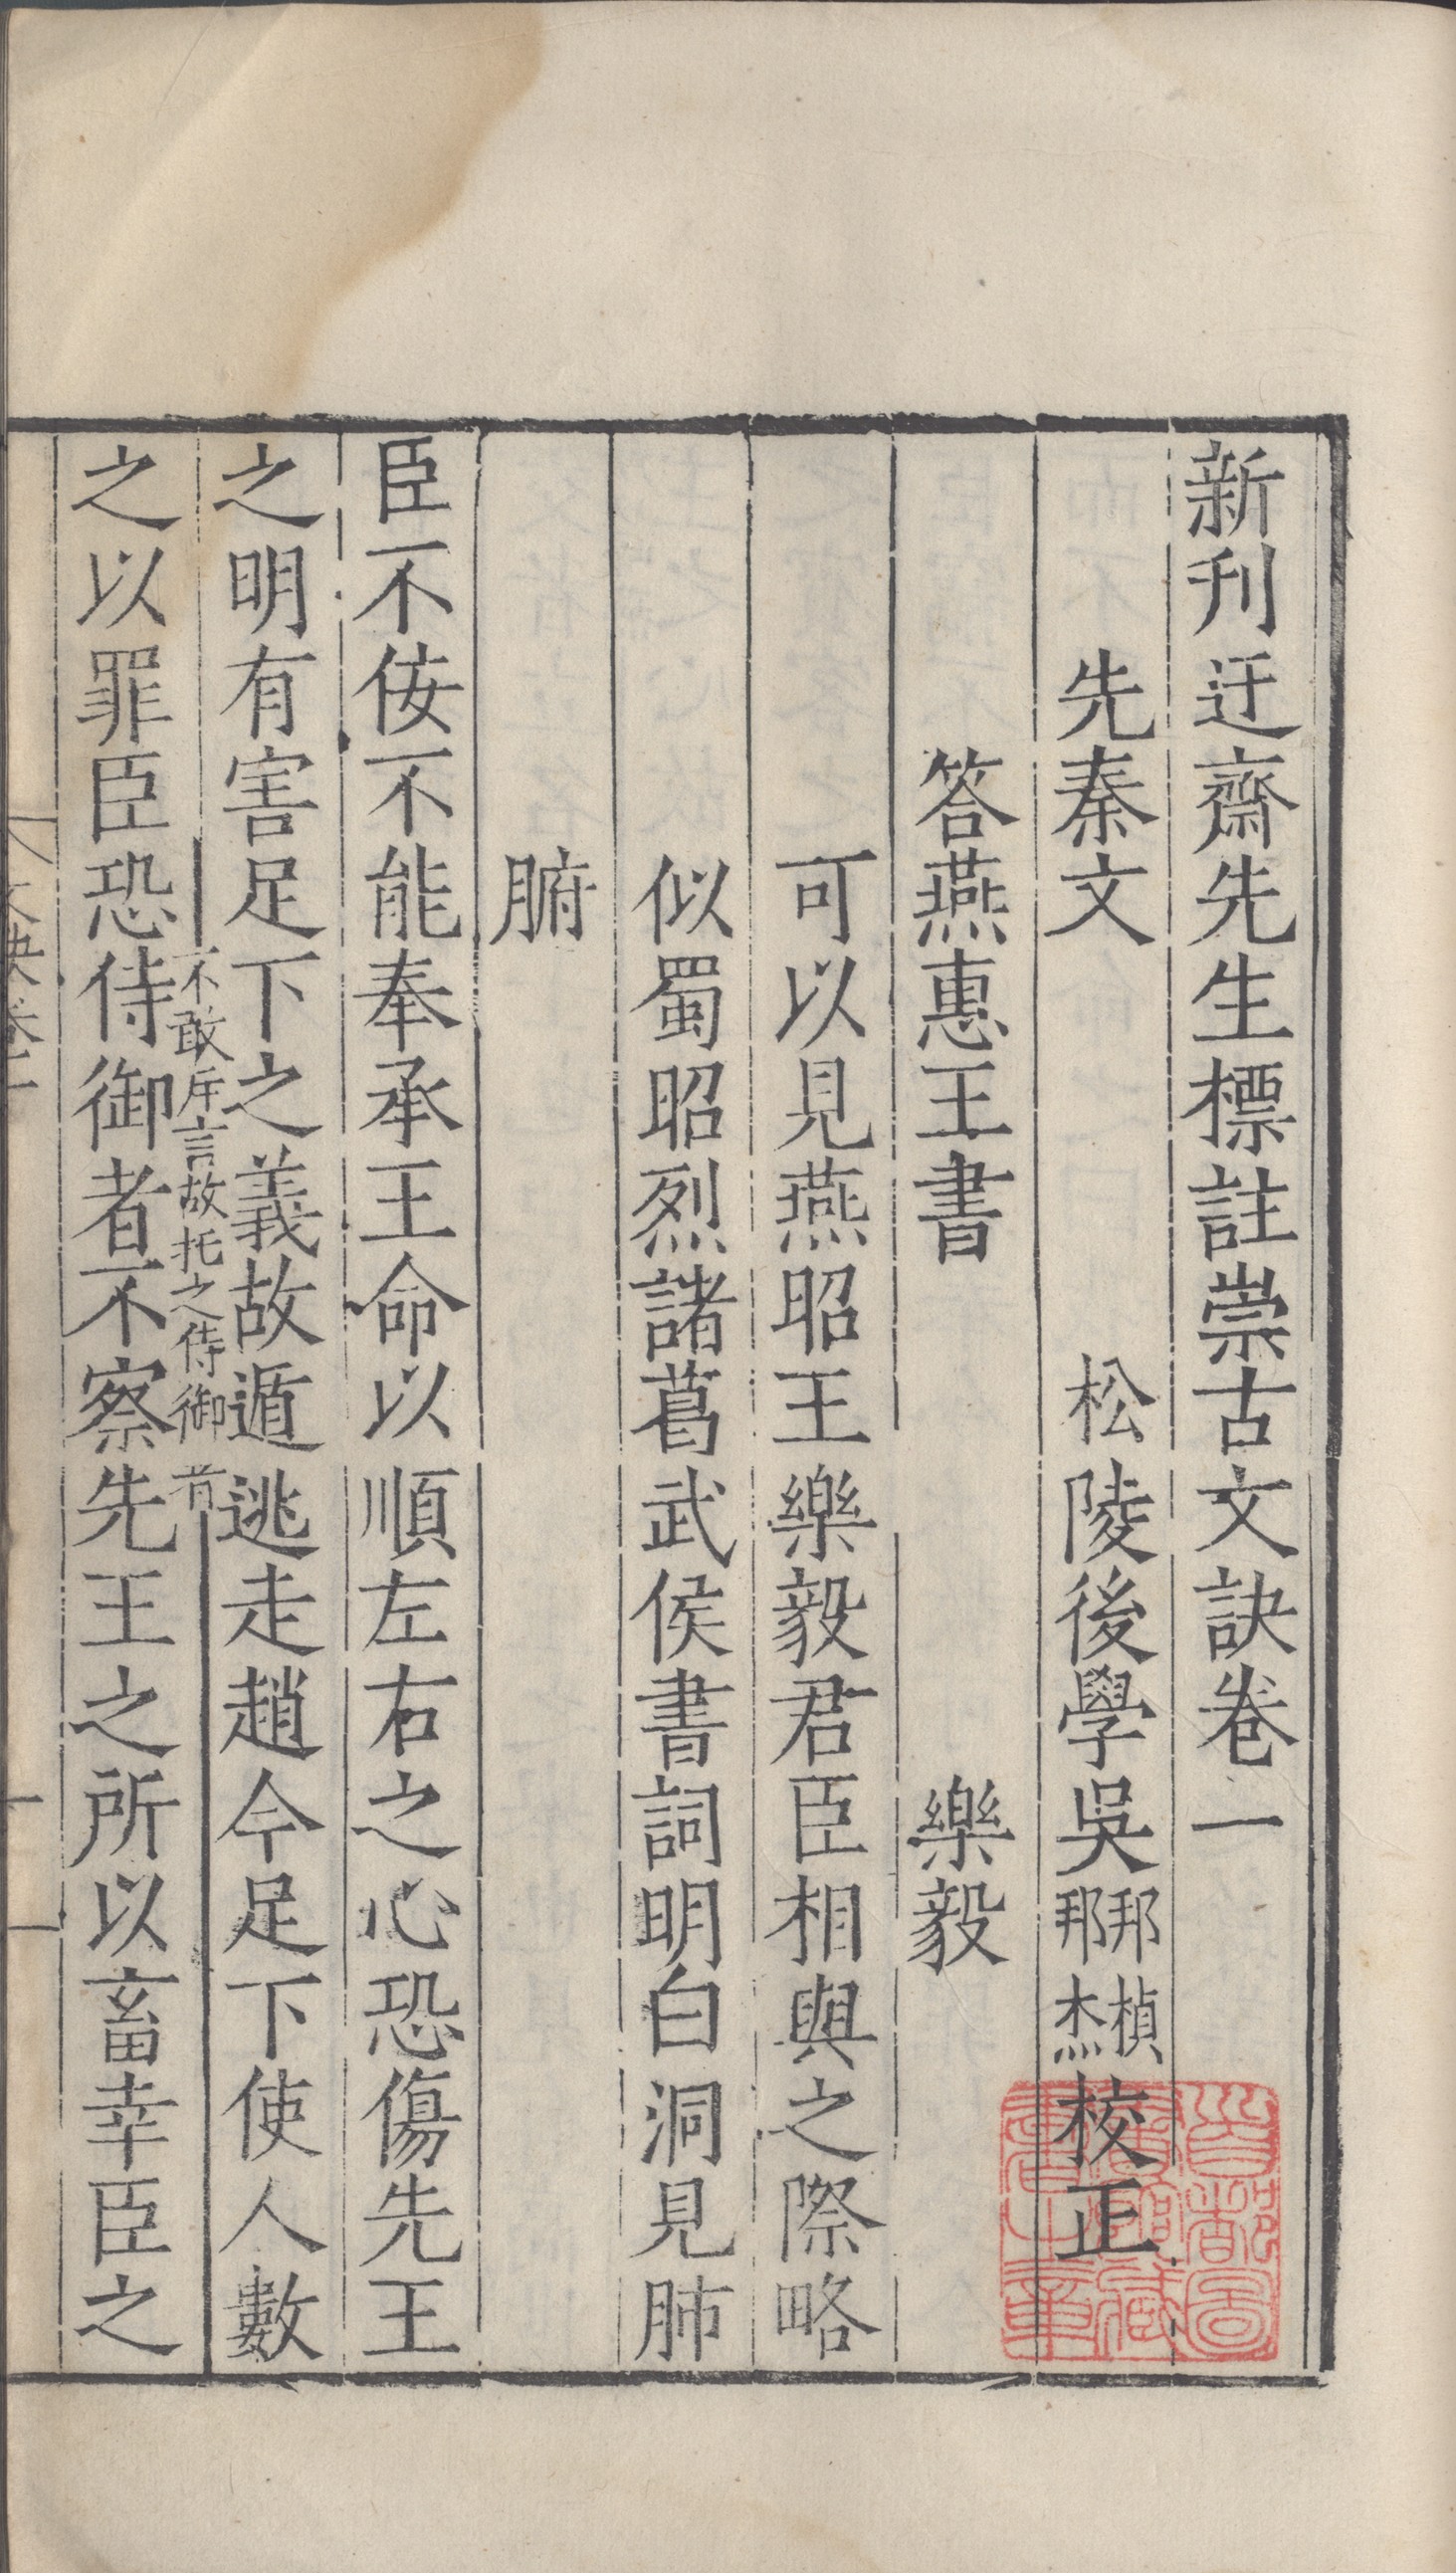 新刊迂齋先生標註崇古文訣卷一
先秦文 松陵後學吳邦楨邦杰校正
答燕惠王書 樂毅
可以見燕昭王樂毅君臣相與之際略
似蜀昭烈諸葛武侯書詞明白洞見肺
腑
臣不佞不能奉承王命以順左右之心恐傷先王
之明有害足下之義故遁逃走趙今足下使人數
不敢斥言故托之侍御者
之以罪臣恐侍御者不察先王之所以畜幸臣之
文訣卷一